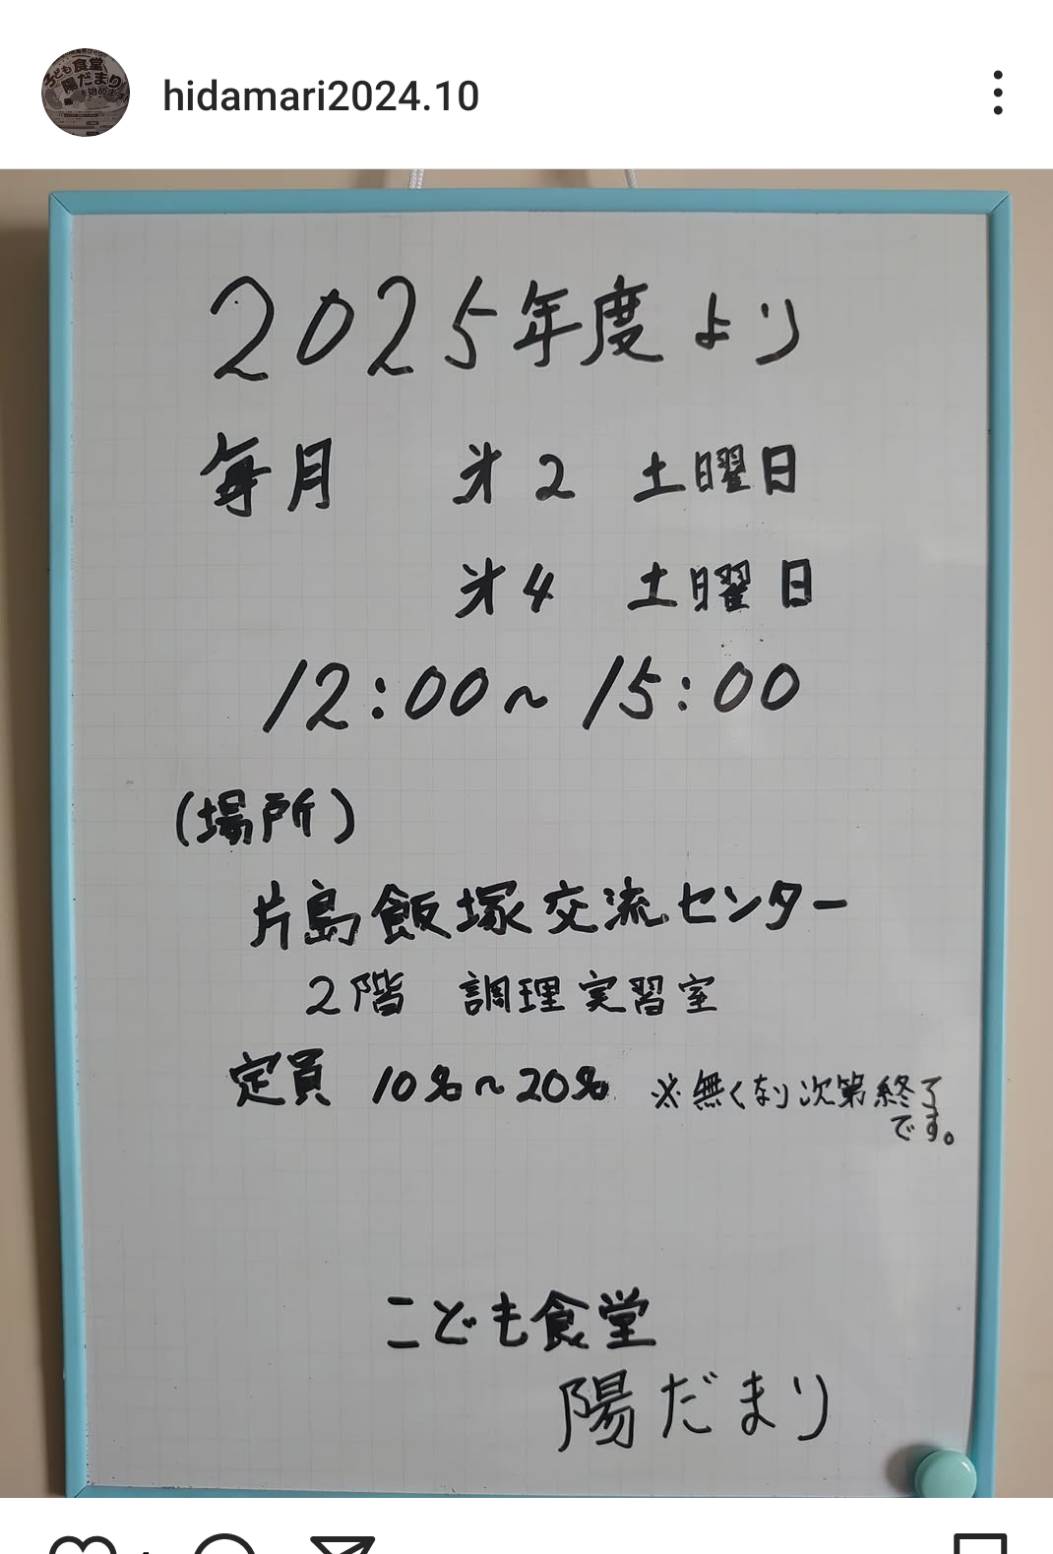 hidamari2024.10
2025年度より
毎月 第2 土曜日
第4 土曜日
12:00～15:00
(場所)
片島飯塚交流センター
2階 調理実習室
定員 10名～20名 ※無くなり次第終了
です。
こども食堂
陽だまり